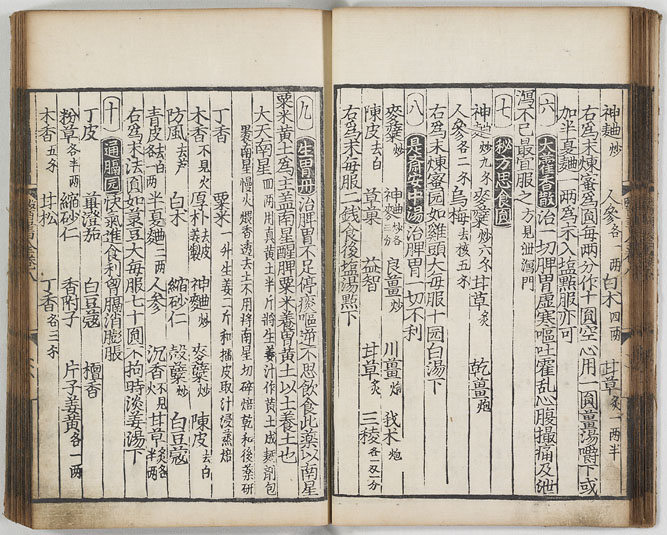 神麯炒 人參各一兩 白朮四兩 甘草炙一兩半
右爲末煉蜜爲圓每兩分作十圓空心用一圓薑湯嚼下或
加半夏麯一兩爲末入塩點服亦可
六 大藿香散 治一切脾胃虛寒嘔吐霍亂心腹撮痛及泄
瀉不已最宜服之 方見泄瀉門
七 秘方思食圓
神麯炒九乄 麥糵炒六乄 甘草炙
人參各二乄 烏梅去核五乄 乾薑炮
右爲末煉蜜圓如雞頭大每服十圓白湯下
八 治脾胃一切不利
麥糵炒 神麯炒各 良薑炒 川薑炮 我朮炮
陳皮去白 草菓 益智 甘草炙 三稜
右爲末每服二錢食後塩湯點下
九 生胃丹 治脾胃不足停痰嘔逆不思飲食此藥以南星
粟米黄土爲主盖南星醒脾粟米養胃黄土以土養土也
大天南星四兩用真黄土半斤將生薑汁作黄土成麵劑包
丁香 粟米一升生薑二斤和擂皮取汁浸蒸焙
木香不見火 厚朴去皮 神麯炒 麥糵炒 陳皮去白
防風去芦 白朮 縮砂仁 穀糵炒 白豆蔲
青皮去白 半夏麯二兩 人參 沉香不見火 甘草炙
右爲末法圓如菉豆大每服七十圓不拘時淡姜湯下
十 通膈圓 快氣進食利胷膈消膨脹
丁皮 蓽澄茄 白豆蔲 檀香
粉草各半兩 縮砂仁 香附子 片子姜黄各一兩
木香五乄 甘松 丁香各三乄